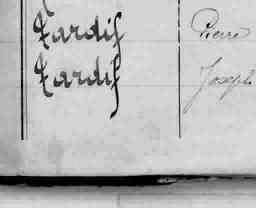 Tardif Pierre
Tardif Joseph